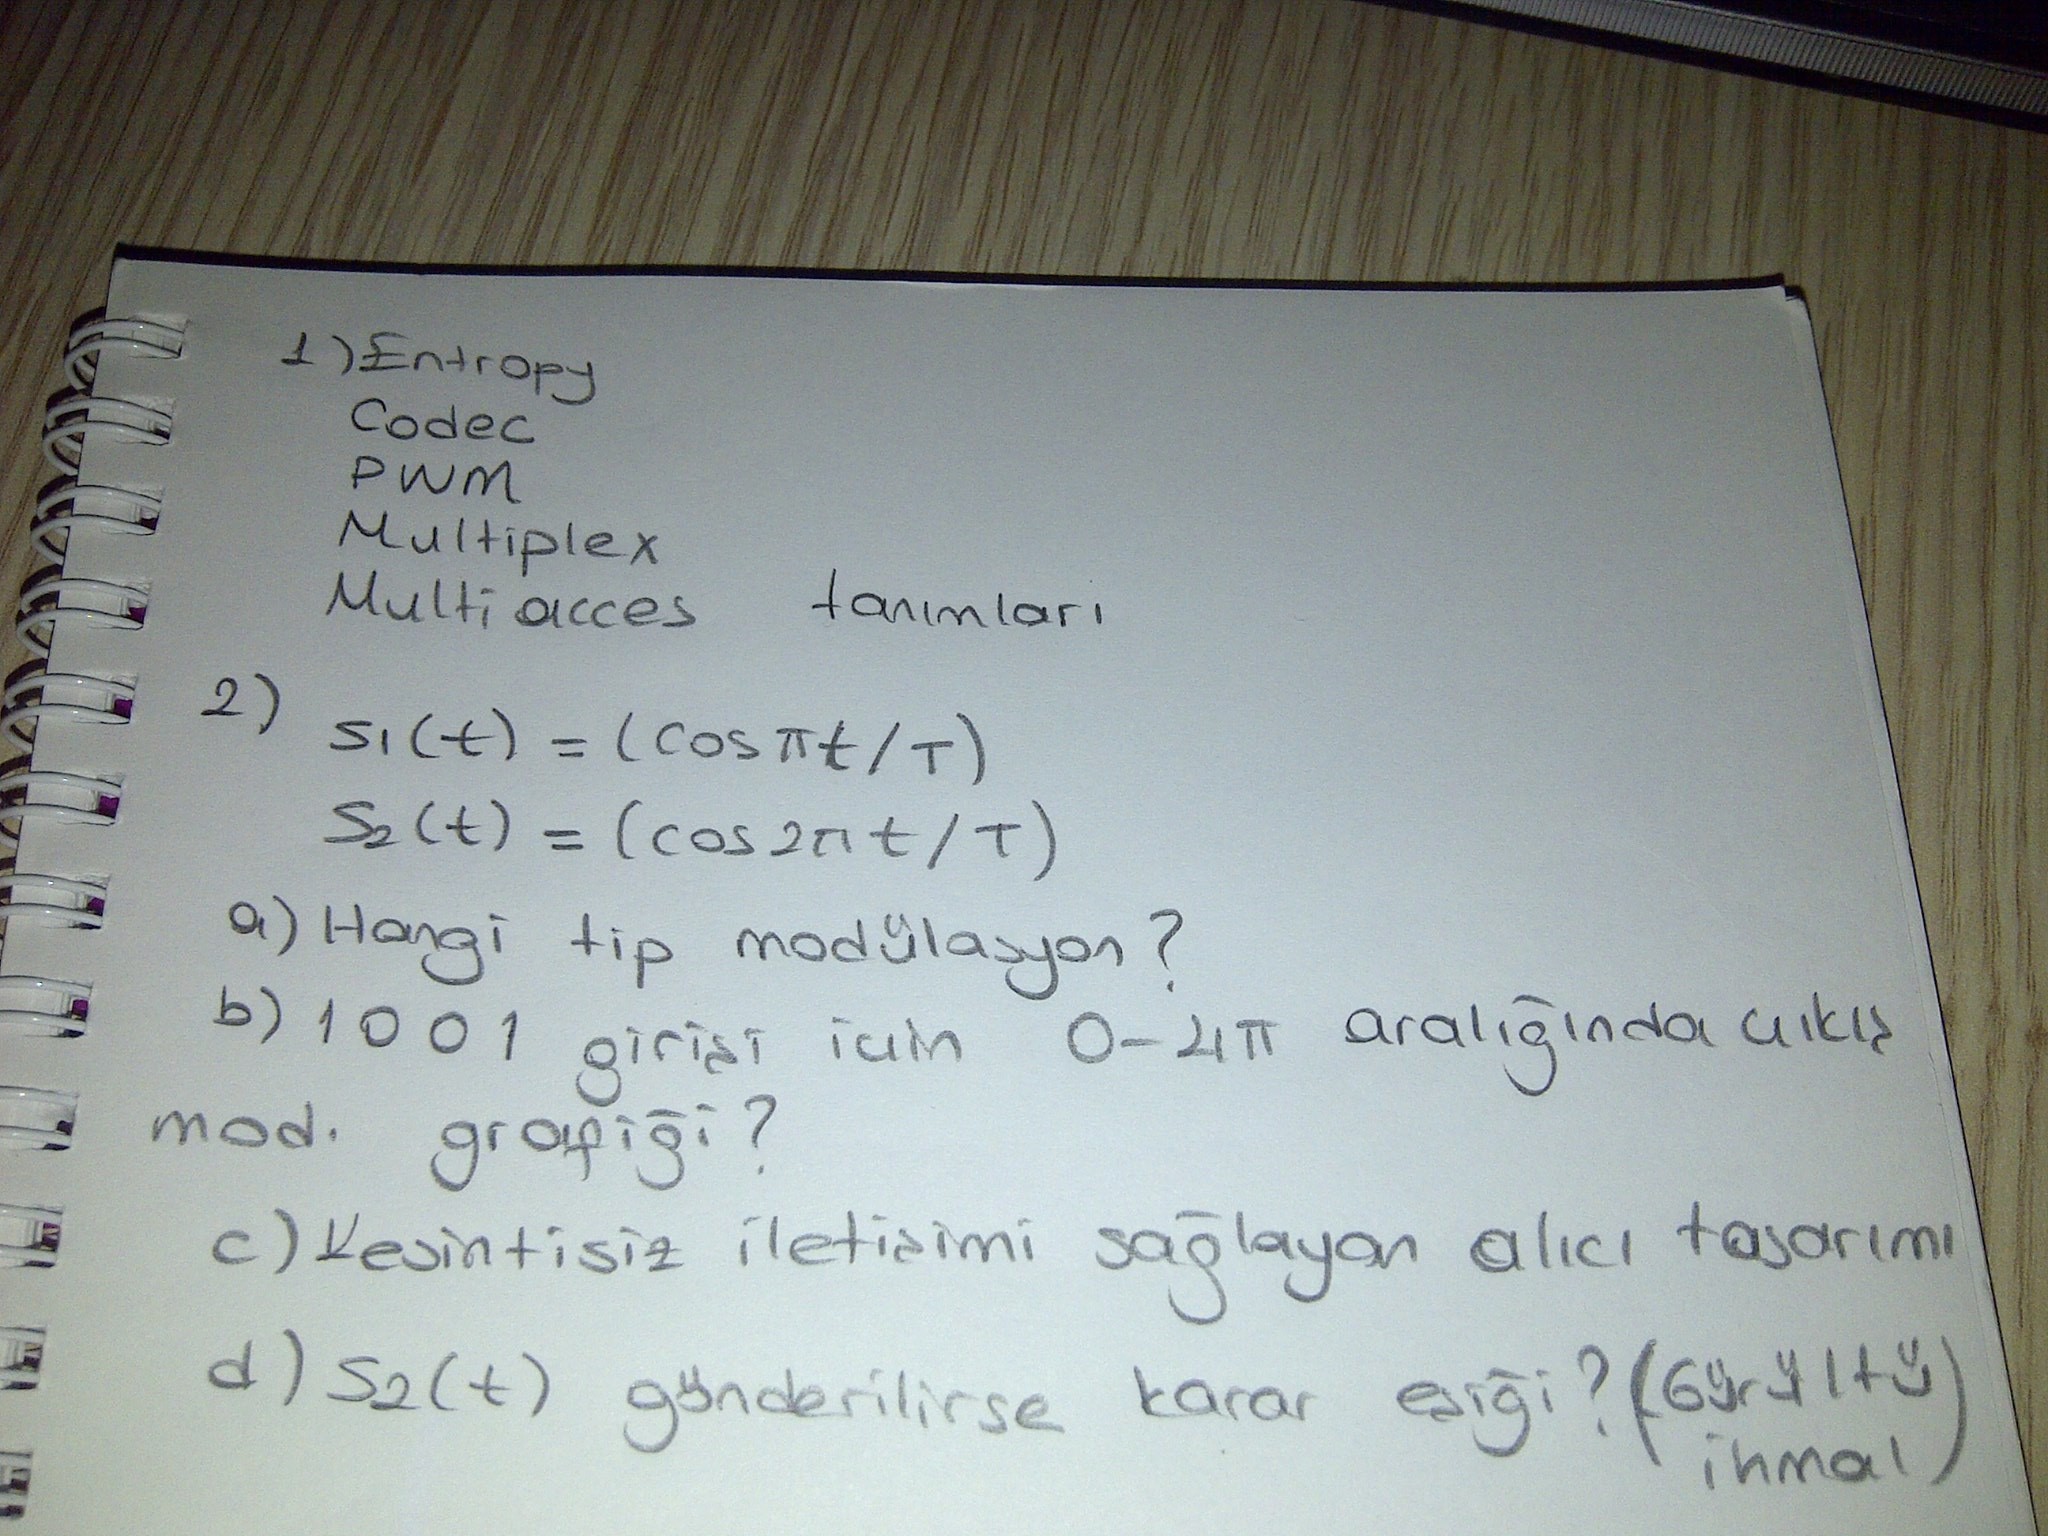 1) Entropy
Codec
PWM
Multiplex
Multi acces tanımları
2)
s1(t) = (cosπt/T)
S2(t) = (cos2πt/T)
a) Hangi tip modülasyon?
b) 1001 girişi için 0-4π aralığında çıkış
mod. grafiği?
c) Kesintisiz iletişimi sağlayan alıcı tasarımı
d) S2(t) gönderilirse karar eşiği? (Gürültü
ihmal)